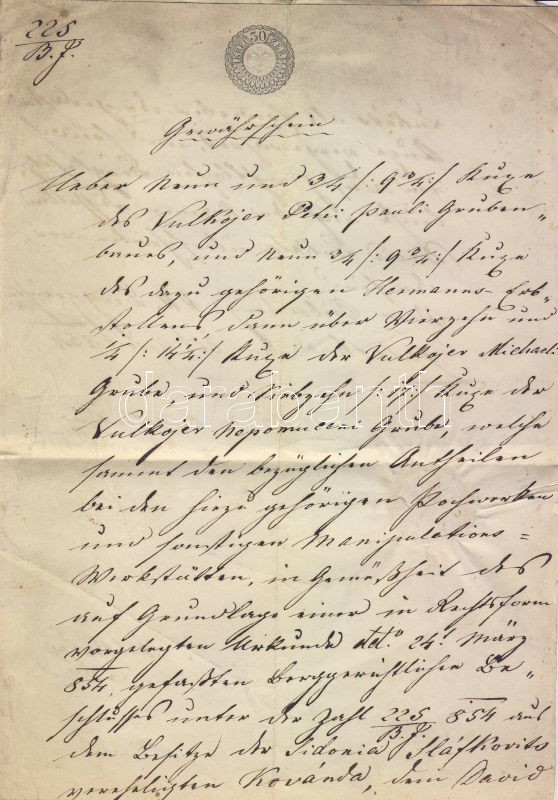 225
B.J.
30
Gewährschein
Ueber Neun und 3/4 /: 9 3/4 :/ Kuxe
des Vulkojer Petri Pauli Gruben„
baues, und Neun 3/4 /: 9 3/4 :/ Kuxe
des dazu gehörigen Hermanns-Erb„
stollens dann über Vierzehn und
1/4 /: 14 1/4 :/ Kuxe der Vulkojer Michaeli
Grube, und Siebzehn /: 17 :/ Kuxe der
Vulkojer Nepomuceni Grube, welche
sammt den bezüglichen Antheilen
bei den hiezu gehörigen Pochwerken
und sonstigen Manipulations=
Werkstätten, in Gemäßheit des
auf Grundlage einer in Rechtsform
vorgelegten Urkunde ddo 24t März
854, gefaßten Berggerichtlichen Be„
schlusses unter der Zahl 225/B.J. 854 aus
dem Besitze der Sidonia Sláfkovits
vereheligten Kovánda, dem David
darabanth